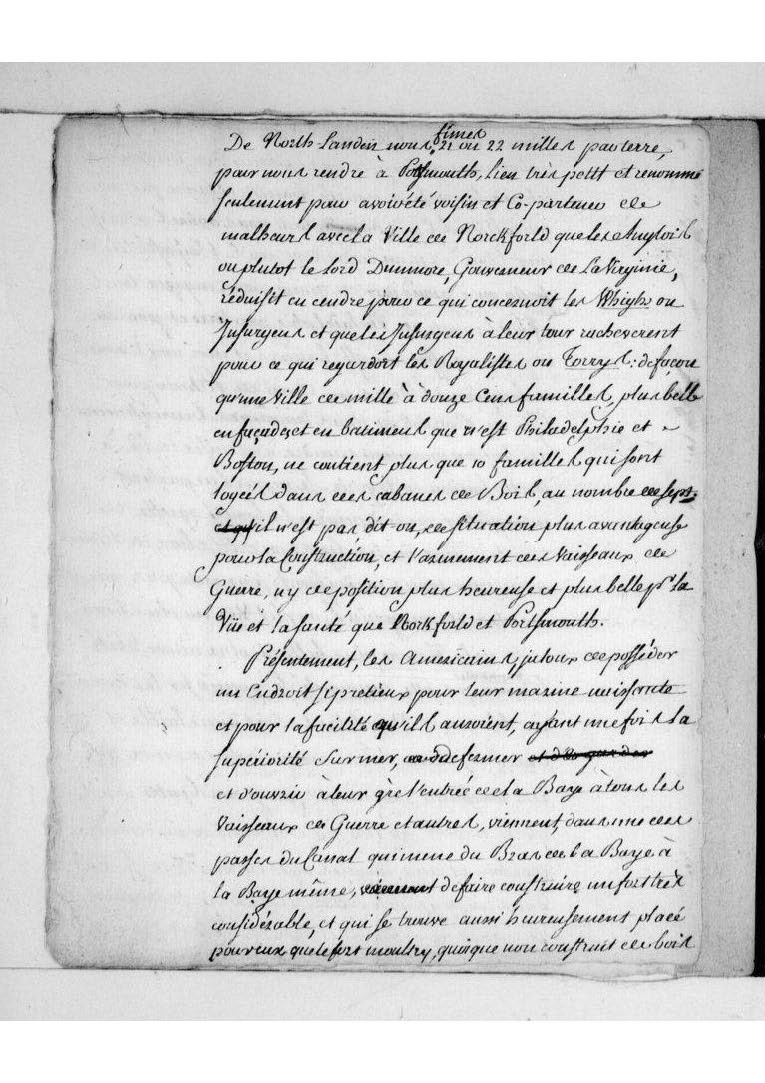 fimes
De North-Landen nous 21 ou 22 milles par terre,
pour nous rendre à Portsmouth, lieu très petit et renommé
seulement pour avoir été voisin et Co-parteneur de
malheurs avec la Ville de Norckforld que les Anglois
ou plutot le lord Dunmore, Gouverneur de La Virginie,
réduisit en cendre pour ce qui concernoit les Whighs ou
Insurgens et que les Insurgens à leur tour racheverent
pour ce qui regardoit les Royalistes ou Torrys: de façon
qu'une Ville de mille à douze Cens familles, plus belle
en façades et en batimens que n'est Philadelphie et
Boston, ne contient plus que 10 familles qui sont
logées dans des cabanes de Bois, au nombre de sept.
et qu'il n'est pas, dit-on, de situation plus avantageuse
pour la Construction, et l'armement des Vaisseaux de
Guerre, n'y de position plus heureuse et plus belle pr. la
Vüe et la santé que Norckforld et Portsmouth.
Présentement, les Américains, jaloux de posséder
un Endroit si pretieux pour leur marine naissante
et pour la facilité qu'ils auroient, ayant une fois la
supériorité sur mer, de fermer et de garder
et d'ouvrir à leur gré l'entrée de la Baye à tous les
Vaisseaux de Guerre et autres, viennent, dans une des
passes du Canal qui mene du Bras de la Baye à
la Baye même, viennent de faire construire un fort très
considérable, et qui se trouve aussi heureusement placé
pour eux que le fort moultry, quoique non construit de bois